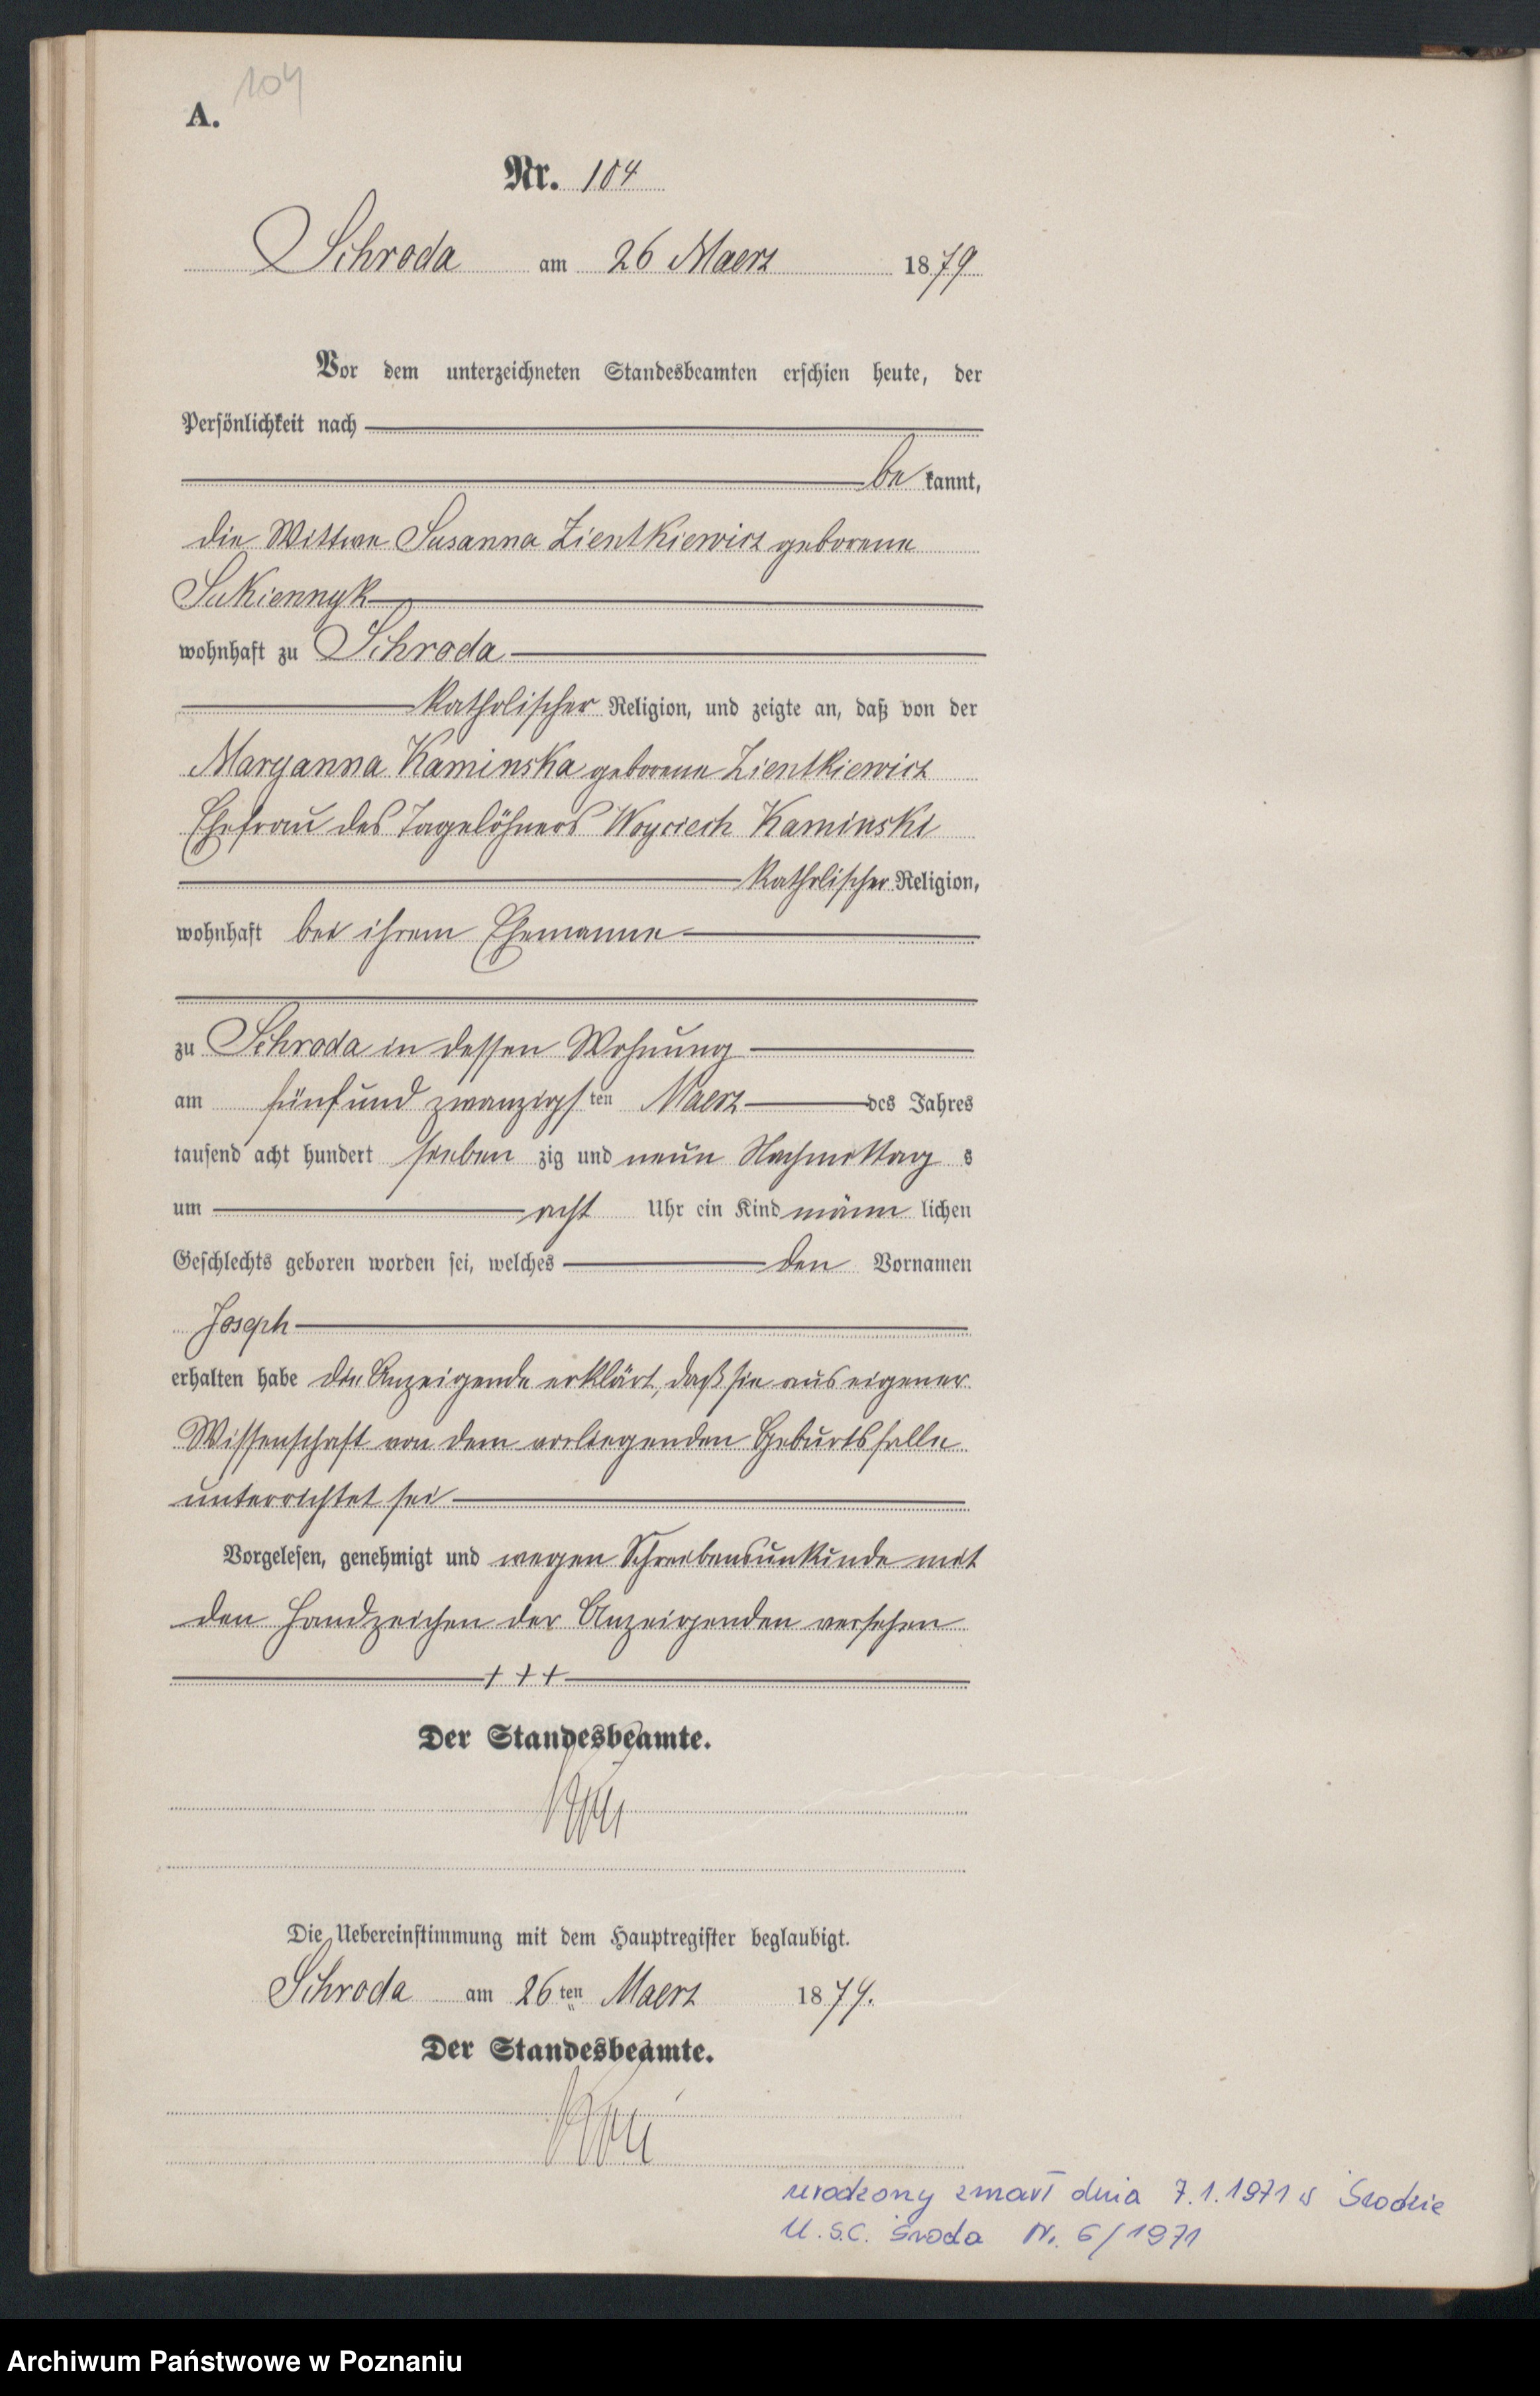 104
A.
Nr. 104
Schroda am 26 Maerz 1879
Vor dem unterzeichneten Standesbeamten erschien heute, der
Persönlichkeit nach
be kannt,
die Wittwe Susanna Zientkiewicz geborene
Sukiennyk
wohnhaft zu Schroda
katholischer Religion, und zeigte an, daß von der
Maryanna Kaminska geborene Zientkiewicz
Ehefrau des Tagelöhners Woyciech Kaminski
katholischer Religion,
wohnhaft bei ihrem Ehemanne
zu Schroda in dessen Wohnung
am fünf und zwanzigs ten Maerz des Jahres
tausend acht hundert sieben zig und neun Nachmittag s
um acht Uhr ein Kind männ lichen
Geschlechts geboren worden sei, welches den Vornamen
Joseph
erhalten habe die Anzeigende erklärt, daß sie aus eigener
Wissenschaft von dem vorliegenden Geburtsfalle
unterrichtet sei
Vorgelesen, genehmigt und wegen Schreibensunkunde mit
den Handzeichen der Anzeigenden versehen
+ + +
Der Standesbeamte.
Die Uebereinstimmung mit dem Hauptregister beglaubigt.
Schroda am 26 ten Maerz 1879.
Der Standesbeamte.
urodzony zmarł dnia 7.1.1971 w Środzie
U.S.C. Środa Nr. 6/1971
Archiwum Państwowe w Poznaniu